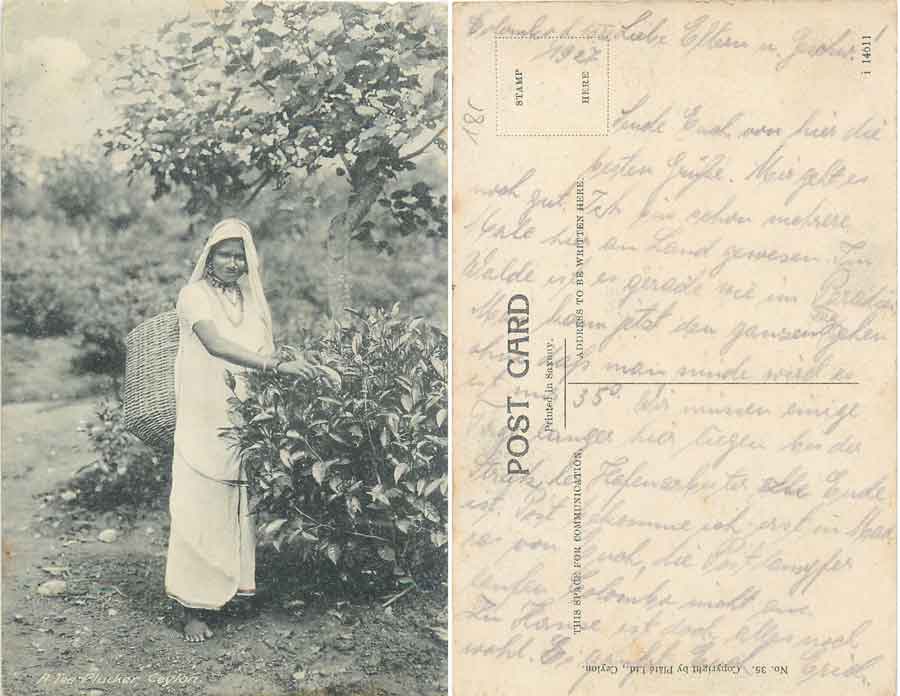 A Tea Plucker Ceylon.
Colombo Liebe Eltern u. Geschw.!
1927
STAMP
HERE
i 14611
181
Sende Euch von hier die
besten Grüße. Mir geht es
noch gut. Ich bin schon mehrere
Male hier an Land gewesen. Im
Walde ist es gerade wie im Paradies
Man kann jetzt den ganzen gehen
ohne daß man müde wird es
ist 35° Wir müssen einige
länger hier liegen bis der
Streik der Hafenarbeiter zu Ende
ist, Post bekomme ich erst in Mad
ras von Euch, die Postdampfer
laufen Colombo nicht an.
Zu Hause ist doch Alles noch
wohl. Es
POST CARD
Printed in Saxony.
ADDRESS TO BE WRITTEN HERE.
THIS SPACE FOR COMMUNICATION.
No. 35. Copyright by Plâté Ltd., Ceylon.